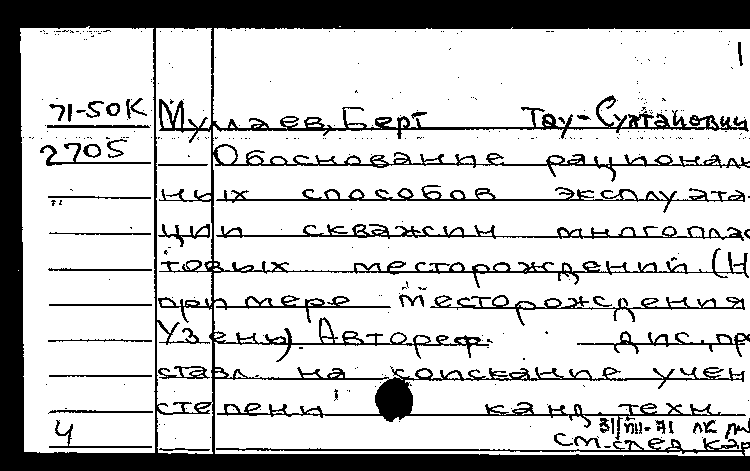 1
71-50К Муллаев, Берт Тау-Султанович
2705 Обоснование рациональ
ных способов эксплуата-
ции скважин многоплас
товых месторождений. (Н
примере месторождения
Узень). Автореф. дис., пр
ставл. на соискание учен
степени канд. техн.
31/VIII-71
4 см. след. кар